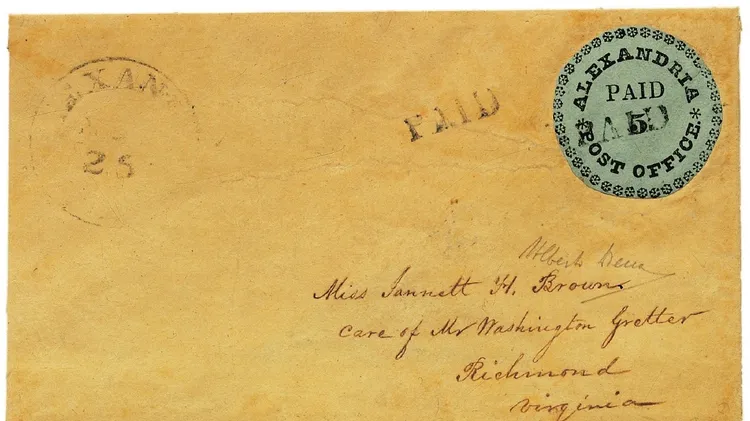 EXAN
25
PAID
* ALEXANDRIA *
PAID
5
PAID
POST OFFICE.
Miss Jannett H. Brown.
Care of Mr Washington Gretter
Richmond
Virginia